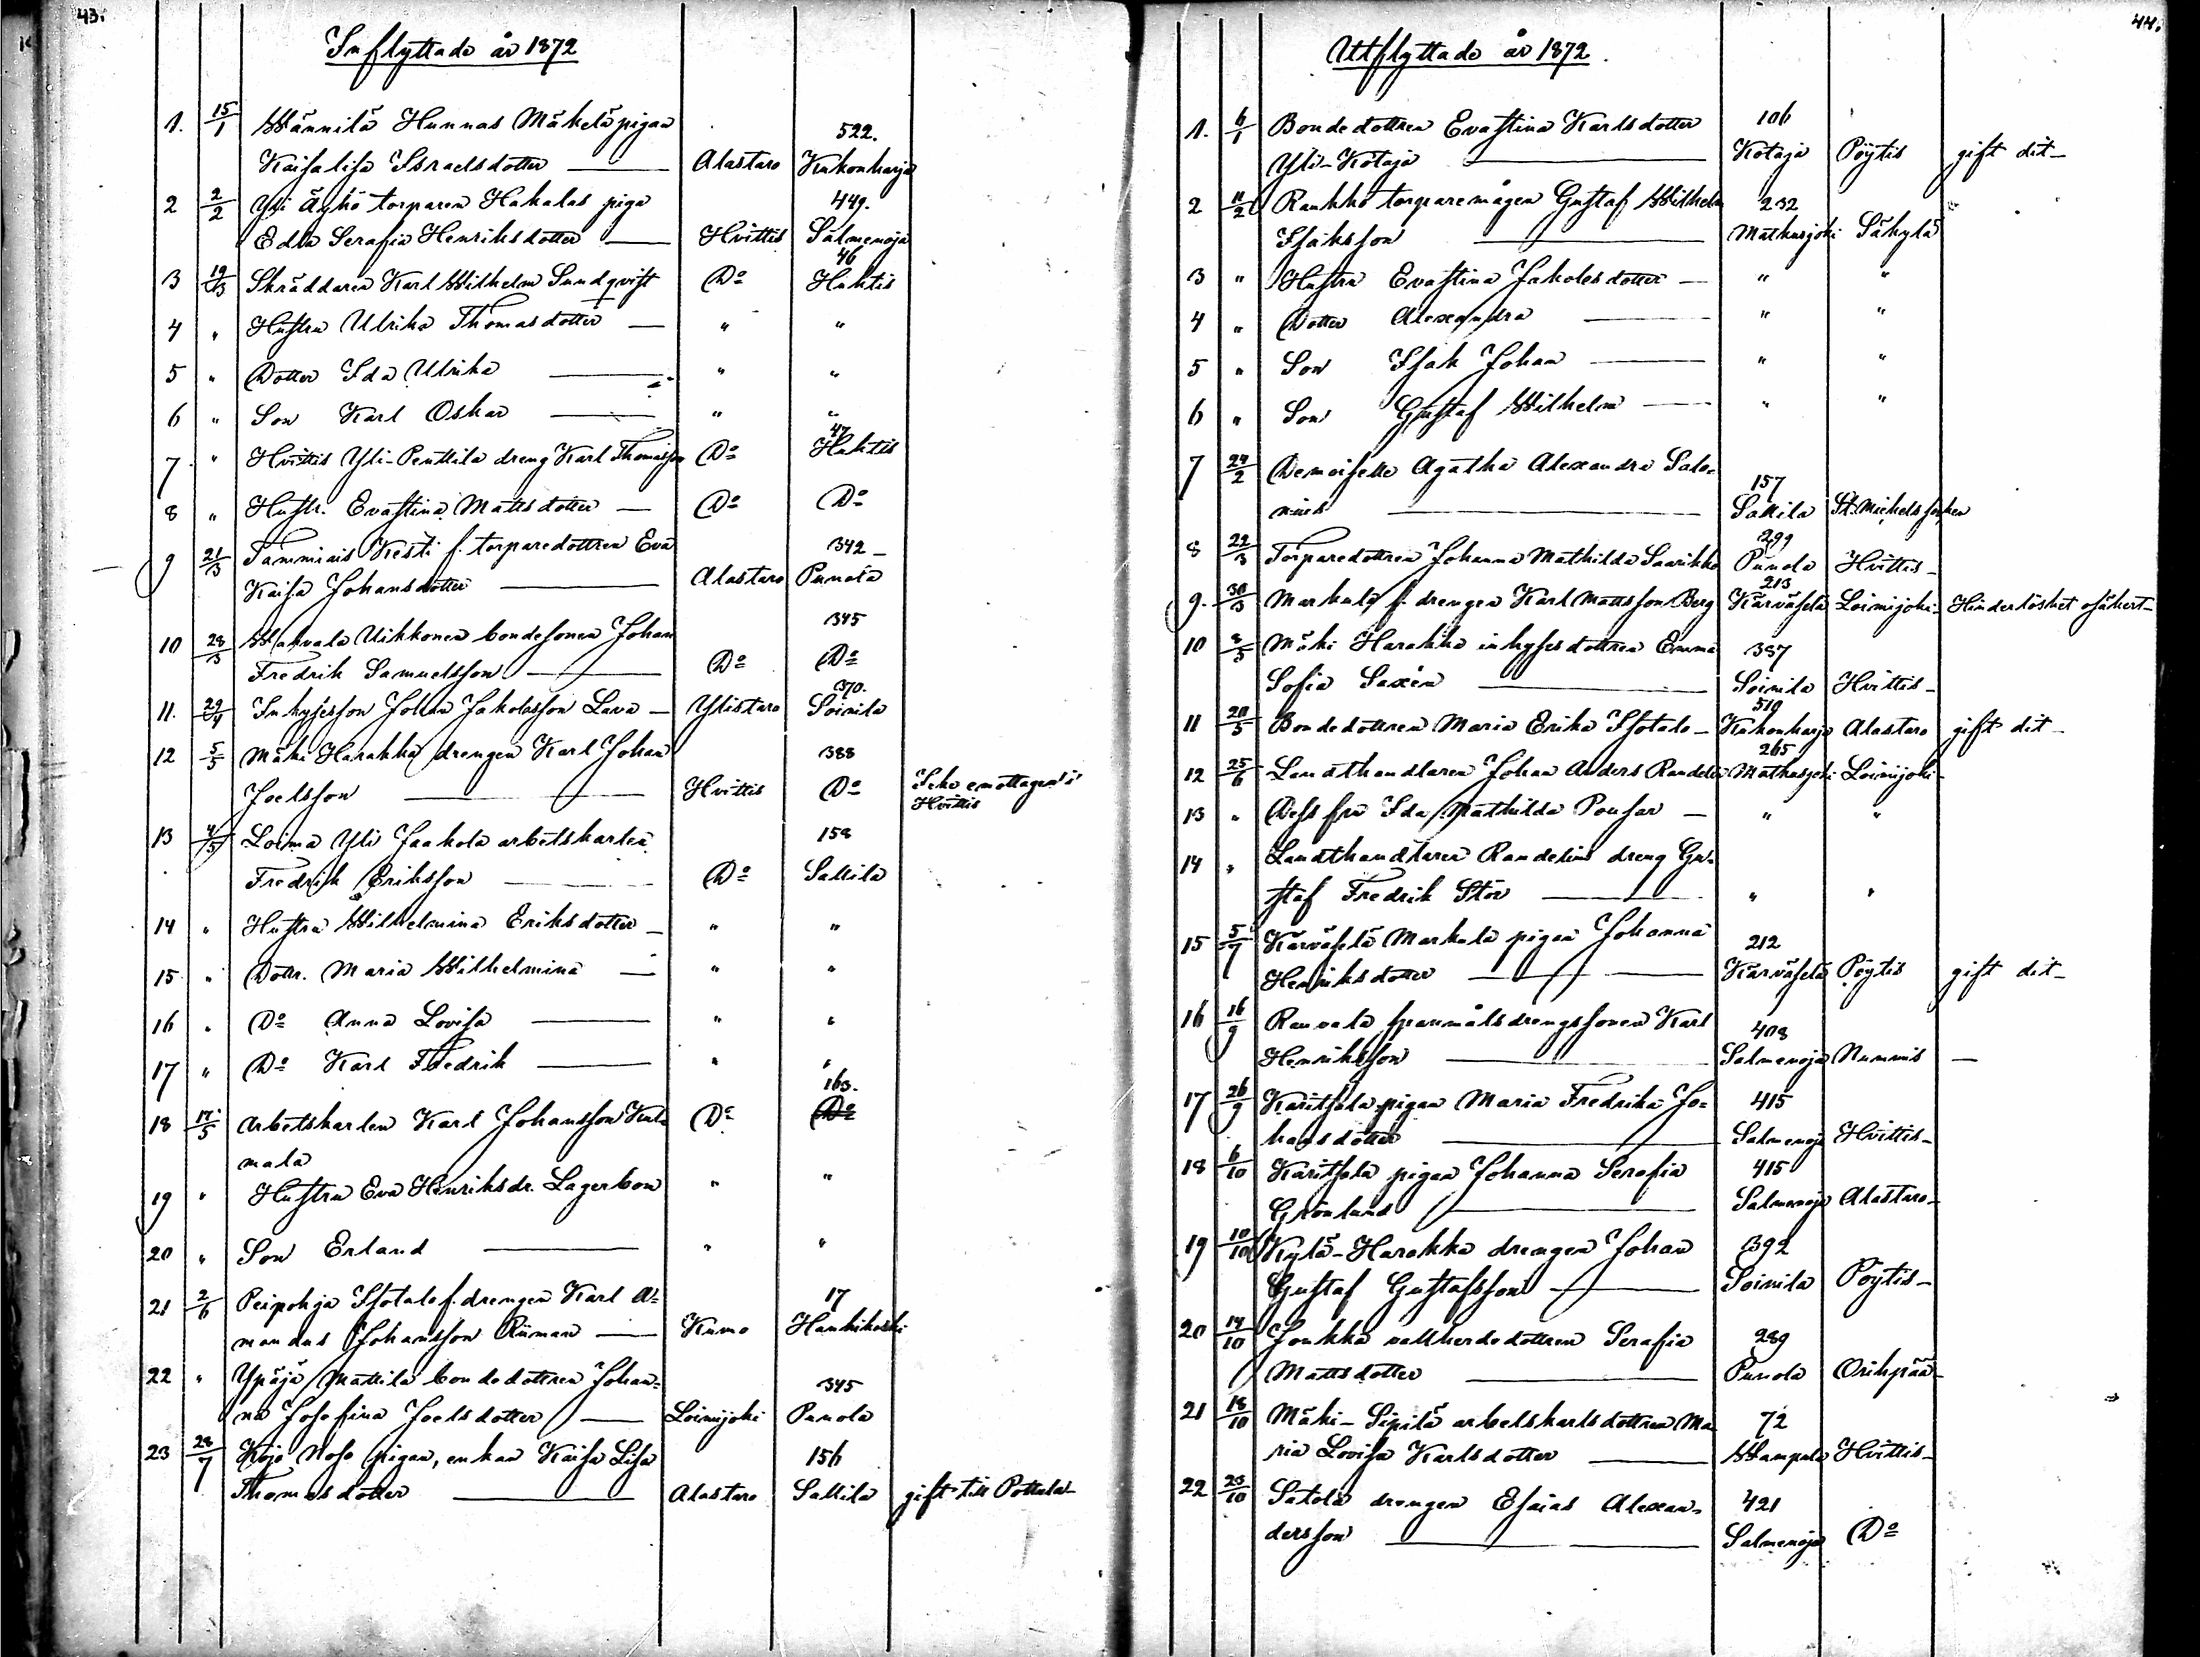 43.
Inflyttade år 1872
1. 15/1 Wännilä Hunnas Mäkelä pigan 522.
Kaisa lisa Israelsdotter — Alastaro Kukonharja
2 2/2 Yli Äyhö torparen Hakalas piga 449.
Edla Serafia Henriksdotter — Hvittis Salmenoja
3 19/3 Skräddaren Karl Wilhelm Sundqvist Do 46 Huhtis
4 " Hustru Ulrika Thomasdotter — " "
5 " Dotter Ida Ulrika — " "
6 " Son Karl Oskar — " "
7 " Hvittis Yli-Penttilä dreng Karl Thomasson Do 47 Huhtis
8 " Hustr. Evastina Mattsdotter — Do Do
9 21/3 Tammiais Kesti f. torparedottren Eva 342
Kaisa Johansdotter — Alastaro Punola
10 28/3 Wahvala Uikkonen bondesonen Johan 345
Fredrik Samuelsson — Do Do
11. 29/4 Inhysesson Johan Jakobsson Lava — Ylistaro 370. Soinila
12 5/5 Mäki Harakka drengen Karl Johan 388
Joelsson — Hvittis Do Icke emottagen i Hvittis
13 4/5 Loima Yli Jaakola arbetskarlen 158
Fredrik Eriksson — Do Sallila
14 " Hustru Wilhelmina Eriksdotter — " "
15 " Dottr. Maria Wilhelmina — " "
16 " Do Anna Lovisa — " "
17 " Do Karl Fredrik — " "
18 17/5 Arbetskarlen Karl Johansson Kul- Do 163. Do
mala
19 " Hustru Eva Henriksdr. Lagerbom " "
20 " Son Erland — " "
21 2/6 Peipohja Isotalo f. drengen Karl A- 17
mandus Johansson Riiman — Kumo Hanhikoski
22 " Ypäjä Mattila bondedottren Johan- 345
na Josefina Joelsdotter — Loimijoki Punola
23 28/7 Kojo Noho pigan, enkan Kaisa Lisa 156
Thomasdotter — Alastaro Sallila gift till Pottula
44.
Utflyttade år 1872.
1. 6/1 Bondedottren Evastina Karlsdotter 106
Yli-Kotaja — Kotaja Pöytis gift dit —
2 11/2 Raukko torparemågen Gustaf Wilhelm 232
Isaksson — Mathusjoki Säkylä
3 " Hustru Evastina Jakobsdotter — " "
4 " Dotter Alexandra — " "
5 " Son Isak Johan — " "
6 " Son Gustaf Wilhelm — " "
7 24/2 Demoiselle Agatha Alexandra Salo-
nius — 157 Sallila St. Michels socken
8 22/3 Torparedottren Johanna Mathilda Saarikko 299 Punola Hvittis —
9. 30/3 Markula f. drengen Karl Mattsson Berg 213 Kärväselä Loimijoki — Hinderlöshet osäkert —
10 8/5 Mäki Harakka inhysesdottren Emma 387
Sofia Saxén — Soinila Hvittis —
11 20/5 Bondedottren Maria Erika Isotalo — 519 Kukonharja Alastaro gift dit —
12 25/6 Landthandlaren Johan Anders Randelin 265 Mathusjoki Loimijoki —
13 " Dess fru Ida Mathilda Ponsar — " "
14 " Landthandlaren Randelins dreng Gu-
staf Fredrik Stör — " "
15 5/7 Kärväselä Markula pigan Johanna 212
Henriksdotter — Kärväselä Pöytis gift dit —
16 16/9 Rauvala spanmålsdrengssonen Karl 408
Henriksson — Salmenoja Nummis —
17 26/9 Karitsala pigan Maria Fredrika Jo- 415
hansdotter — Salmenoja Hvittis —
18 6/10 Karitsala pigan Johanna Serafia 415
Grönlund — Salmenoja Alastaro —
19 10/10 Kylä-Harakka drengen Johan 392
Gustaf Gustafsson — Soinila Pöytis —
20 14/10 Joukka vallherdedottren Serafia 289
Mattsdotter — Punola Orihpää —
21 18/10 Mäki-Sipilä arbetskarlsdottren Ma- 72
ria Lovisa Karlsdotter — Wampula Hvittis —
22 25/10 Satola drengen Esaias Alexan- 421
dersson — Salmenoja Do